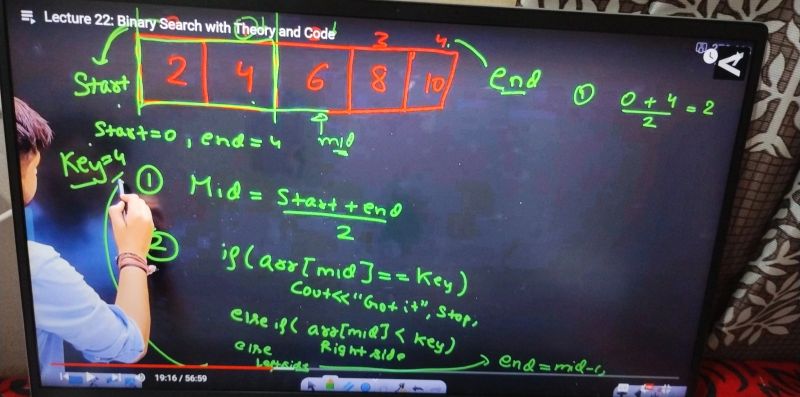 Lecture 22: Binary Search with Theory and Code
3 4
Start 2 4 6 8 10 end
① 0 + 4 = 2
2
Start=0, end=4 mid
Key=4
① Mid = Start + end
2
② if (arr[mid]==Key)
Cout<<"Got it", Stop,
else if ( arr[mid] < Key)
Right side
else
Left side end = mid-1,
19:16 / 56:59